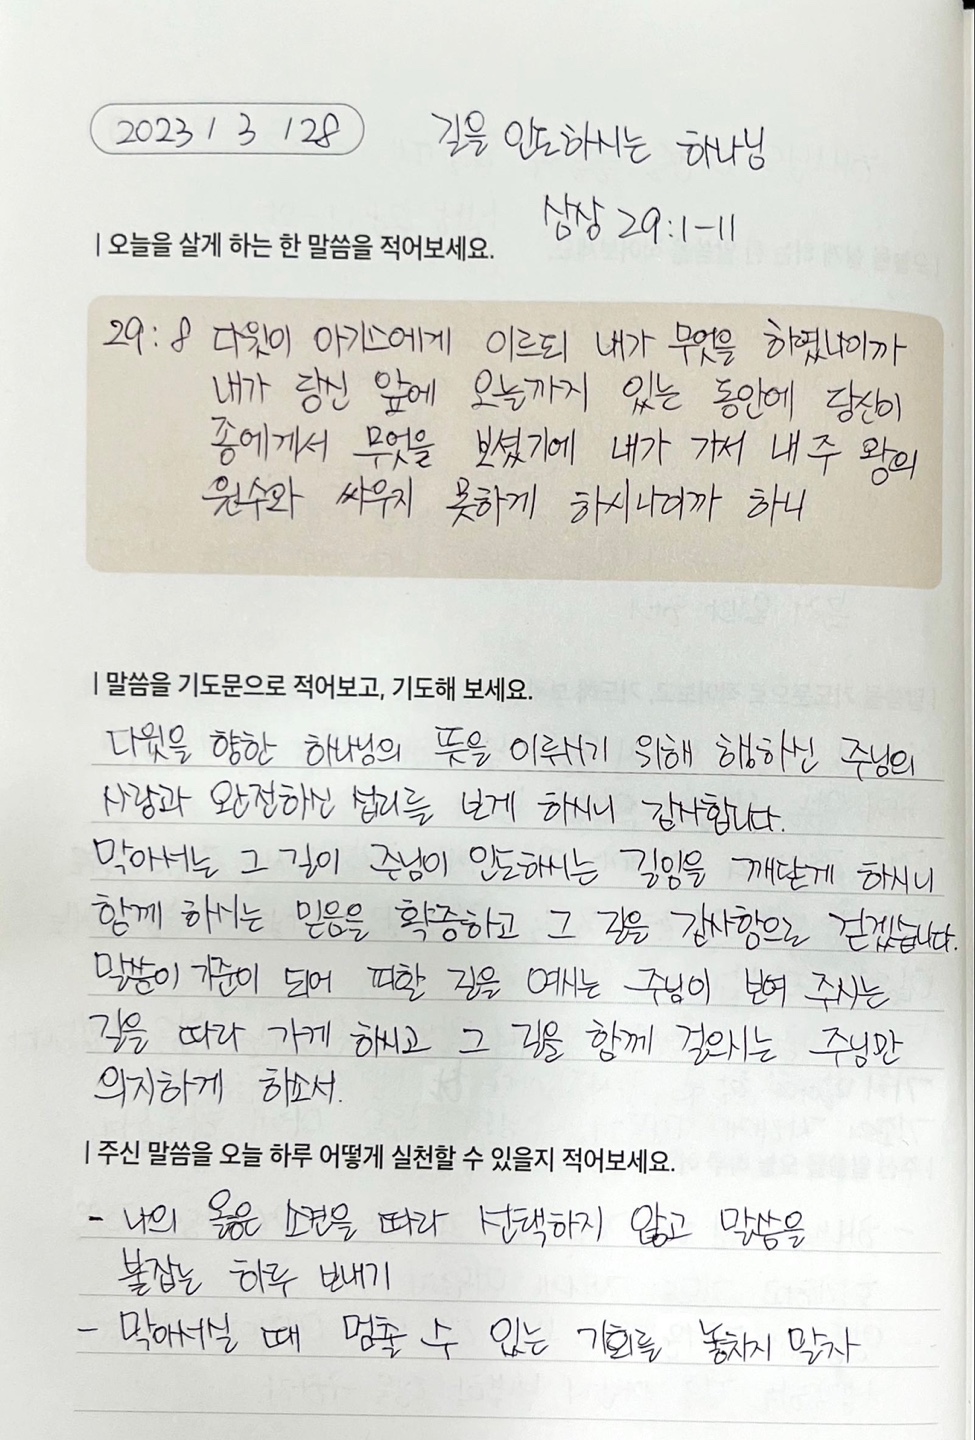 2023 / 3 / 28
길을 인도하시는 하나님
삼상 29:1-11
| 오늘을 살게 하는 한 말씀을 적어보세요.
29:8 다윗이 아기스에게 이르되 내가 무엇을 하였나이까
내가 당신 앞에 오늘까지 있는 동안에 당신이
종에게서 무엇을 보셨기에 내가 가서 내 주 왕의
원수와 싸우지 못하게 하시나이까 하니
| 말씀을 기도문으로 적어보고, 기도해 보세요.
다윗을 향한 하나님의 뜻을 이루시기 위해 행하신 주님의
사랑과 완전하신 섭리를 보게 하시니 감사합니다.
막아서는 그 길이 주님이 인도하시는 길임을 깨닫게 하시니
함께 하시는 믿음을 확증하고 그 길을 감사함으로 걷겠습니다.
말씀이 기준이 되어 피할 길을 여시는 주님이 보여 주시는
길을 따라 가게 하시고 그 길을 함께 걸으시는 주님만
의지하게 하소서.
| 주신 말씀을 오늘 하루 어떻게 실천할 수 있을지 적어보세요.
- 나의 옳은 소견을 따라 선택하지 않고 말씀을
붙잡는 하루 보내기
- 막아서실 때 멈출 수 있는 기회를 놓치지 말자